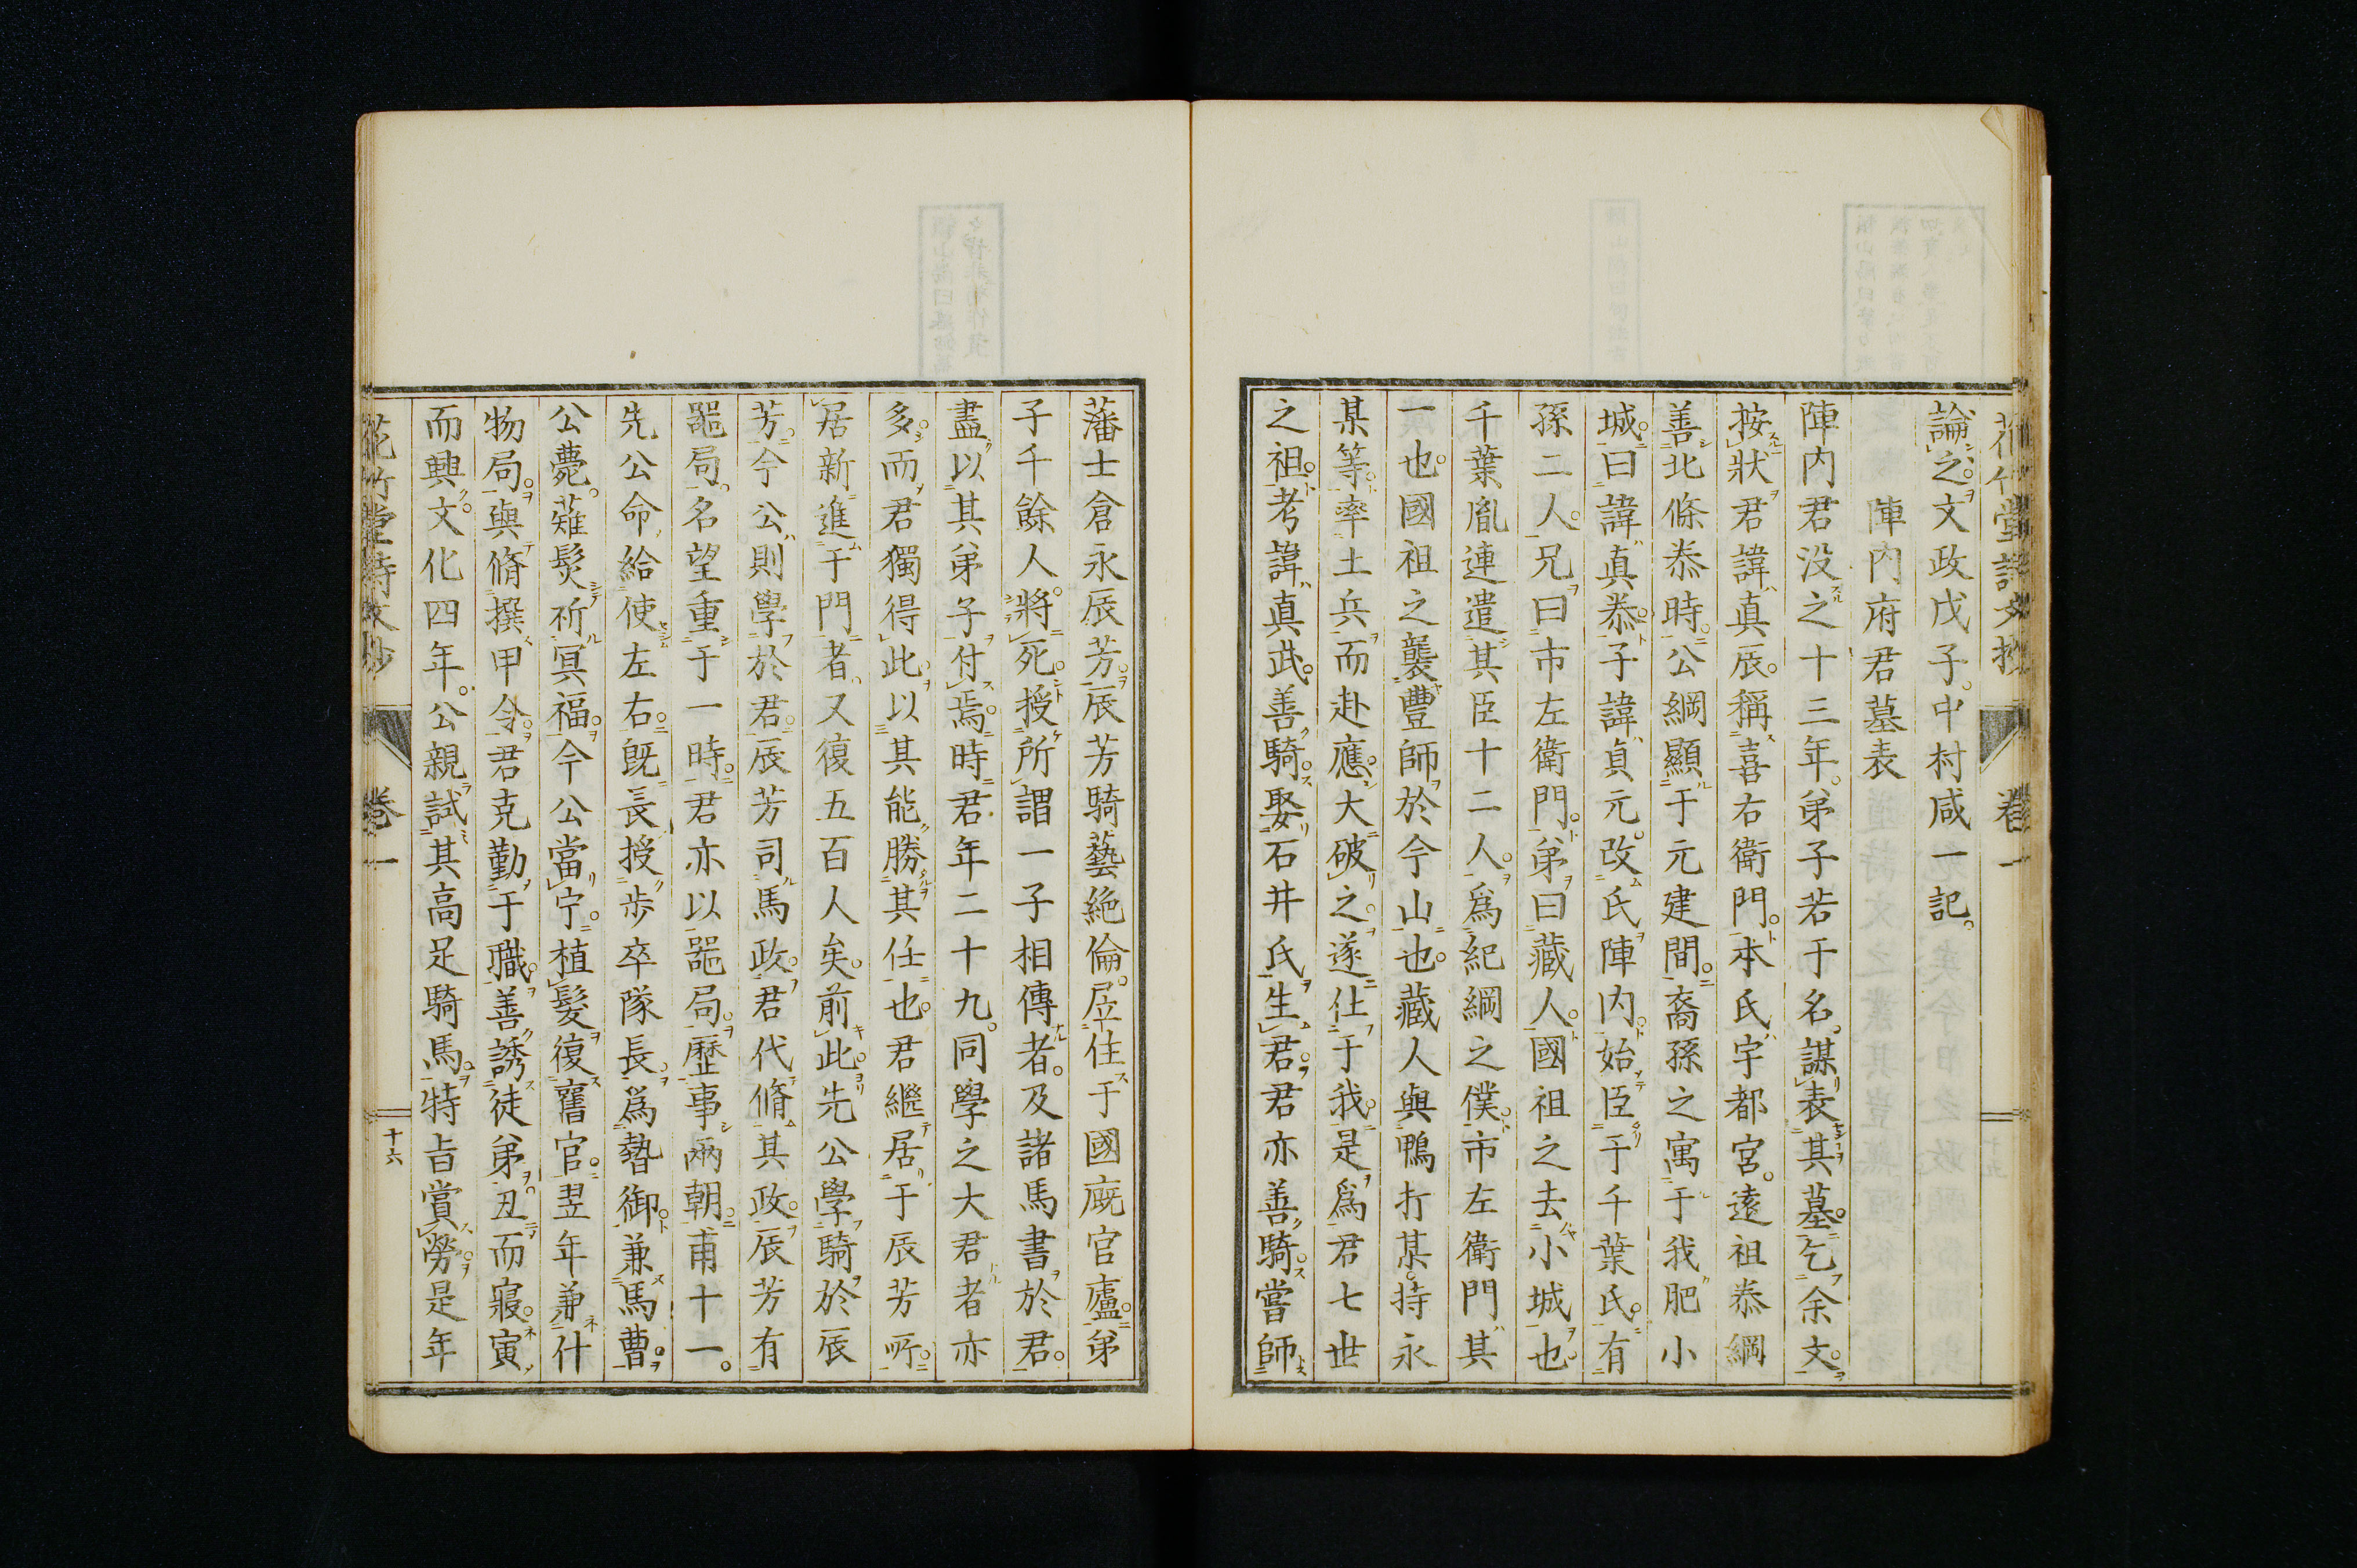 論之文政戊子中村咸一記
陣内府君墓表
陣内君没之十三年弟子若干名謀表其墓乞余文
按狀君諱真辰稱喜右衛門本氏宇都宮遠祖泰綱
善北條泰時公綱顯于元建間裔孫之寓于我肥小
城曰諱真泰子諱貞元改氏陣内始臣于千葉氏有
孫二人兄曰市左衛門弟曰藏人國祖之去小城也
千葉胤連遣其臣十二人爲紀綱之僕市左衛門其
一也國祖之襲豐師於今山也藏人與鴨打某持永
某等率土兵而赴應大破之遂仕于我是爲君七世
之祖考諱真武善騎娶石井氏生君君亦善騎嘗師
藩士倉永辰芳辰芳騎藝絶倫居住于國廐官廬弟
子千餘人將死授所謂一子相傳者及諸馬書於君
盡以其弟子付焉時君年二十九同學之大君者亦
多而君獨得此以其能勝其任也君繼居于辰芳所
居新進于門者又復五百人矣前此先公學騎於辰
芳今公則學於君辰芳司馬政君代脩其政辰芳有
噐局名望重于一時君亦以噐局歷事兩朝甫十一
先公命給使左右旣長授步卒隊長爲贄御兼馬曹
公薨薙髮祈冥福今公當宁植髮復舊官翌年兼什
物局與脩撰甲令君克勤于職善誘徒弟丑而寢寅
而興文化四年公親試其高足騎馬特旨賞勞是年
花竹堂詩文抄 卷一 十六